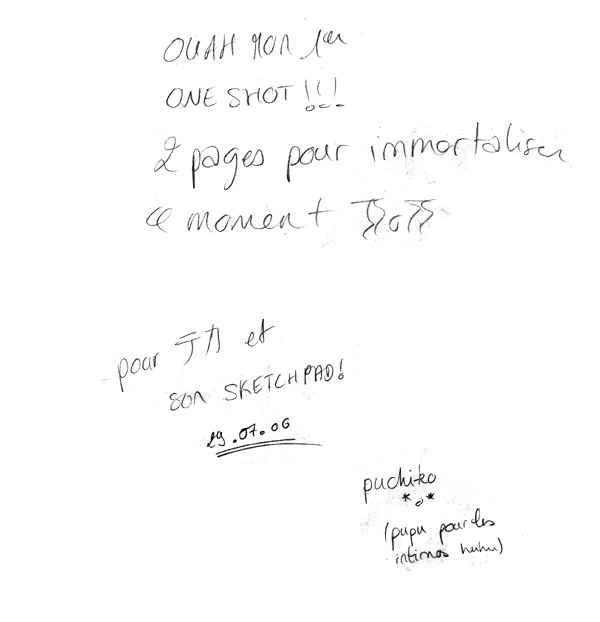 OUAH MON 1er
ONE SHOT !!!
2 pages pour immortaliser
ce moment
pour テカ et
son SKETCHPAD!
29.07.06
puchiko
*o*
(pupu pour les
intimes huhu)